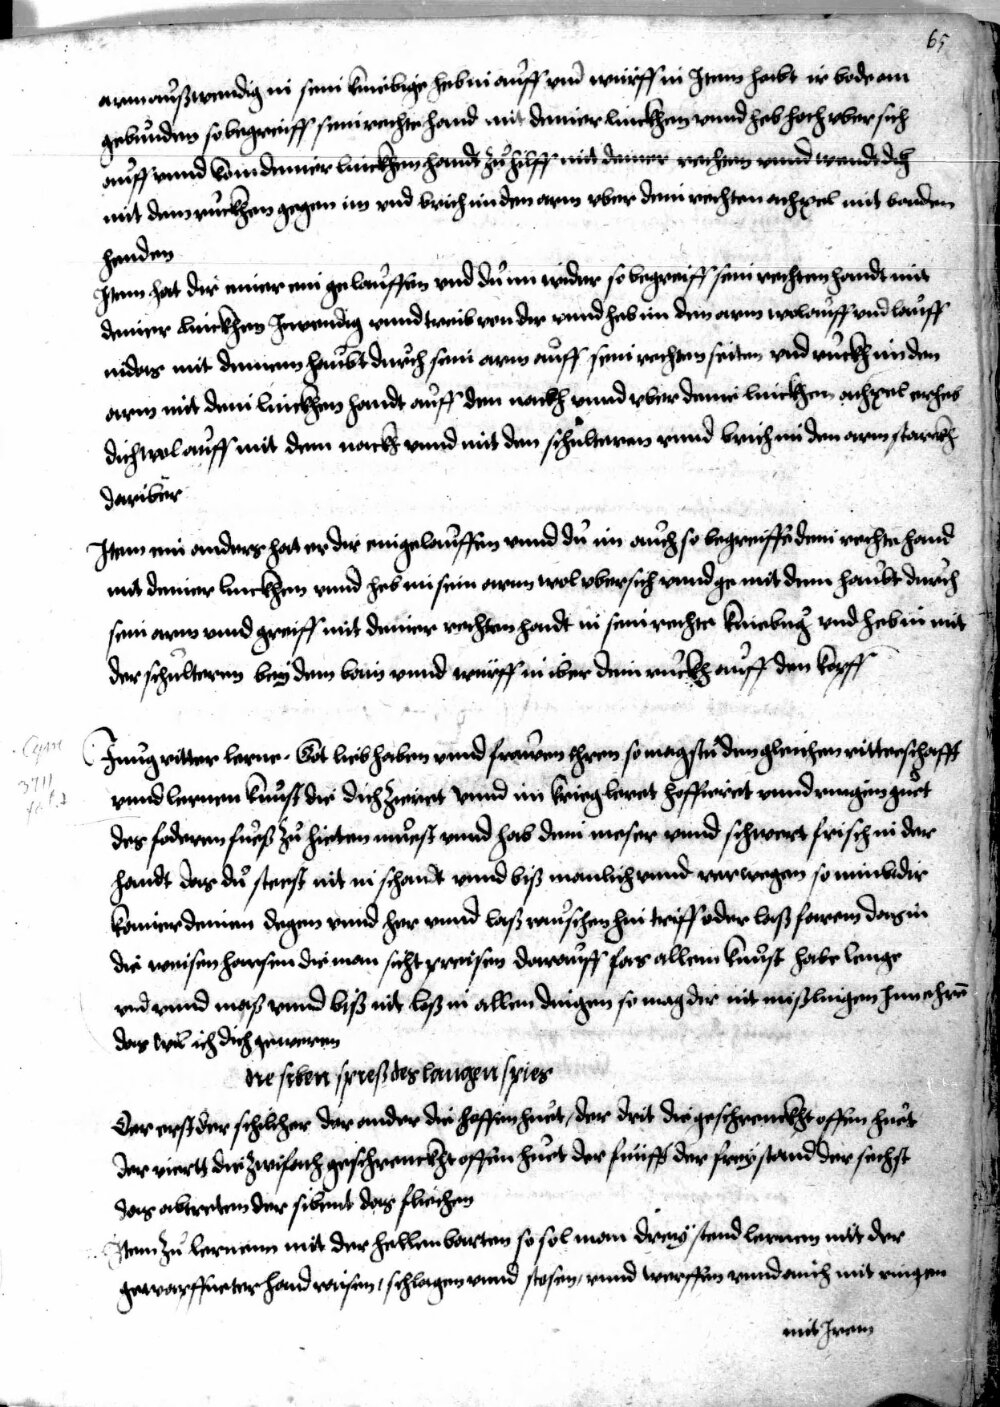 65
arm außwendig in sein kniebige heb in auff vnd würff in Item habt ir bede arm
gebunden so begreiff sein rechte hand mit deiner linckhen vnnd heb hoch vber sich
auff vnnd kom deiner linckhen handt zu hilff mit deiner rechten vnnd wendt dich
mit dem ruckhen gegen im vnd brich im den arm vber dein rechten achxel mit baiden
henden
Item hat dir einer ein gelauffen vnd du im wider so begreiff sein rechten handt mit
deiner linckhen Inwendig vnnd treib von dir vnnd heb im den arm wol auff vnd lauff
nider mit deinem haubt durch sein arm auff sein rechten seiten vnd ruckh im den
arm mit dein linckhen handt auff den nackh vnnd vber deine linckhen achxel erheb
dich wol auff mit dem nackh vnnd mit den schulteren vnnd brich im den arm starckh
dariber
Item ein anders hat er dir eingelauffen vnnd du im auch so begreiff dein rechte hand
mit deiner linckhen vnnd heb im sein arm wol vber sich vnnd ge mit dem haubt durch
sein arm vnnd greiff mit deiner rechten handt in sein rechte kniebug vnd heb in mit
der schulteren bey dem bain vnnd würff in iber dein ruckh auff den kopff
Cgm
3711
Jung ritter lerne. Got lieb haben vnnd frawen ehren so magstu dem gleichen ritterschafft
vnnd lernen kunst die dich zieret vnnd im krieg leret hoffieret vnnd ringen guet
des foderen fueß zu hieten muest vnnd hab dein meser vnnd schwert frisch in der
handt das du steest nit in schandt vnnd biß manlich vnnd verwegen so
deinem degen vnnd her vnnd laß rauschen hin triff oder laß farem das in
die weisen hassen die man sicht preisen darauff fas allein kunst habe lenge
vnd vnnd maß vnnd biß nit laß in allen dingen so mag dir nit mißlingen Inn ehren
das wil ich dich geweren
Die siben spieß des langen spies
Der erst der schilcher der ander die hoffenhuet / der drit die geschrenckht offen huet
der viertt die zwifach geschrenckht offen huet der fünfft der frey stand der sechst
das abtreten der sibent das fliechen
Item zu lernenn mit der hellenbarten so sol man drey stend lernen mit der
gewaffneter hand weisen / schlagen vnnd stosen / vnnd werffen vnnd auch mit ringen
mit Irem